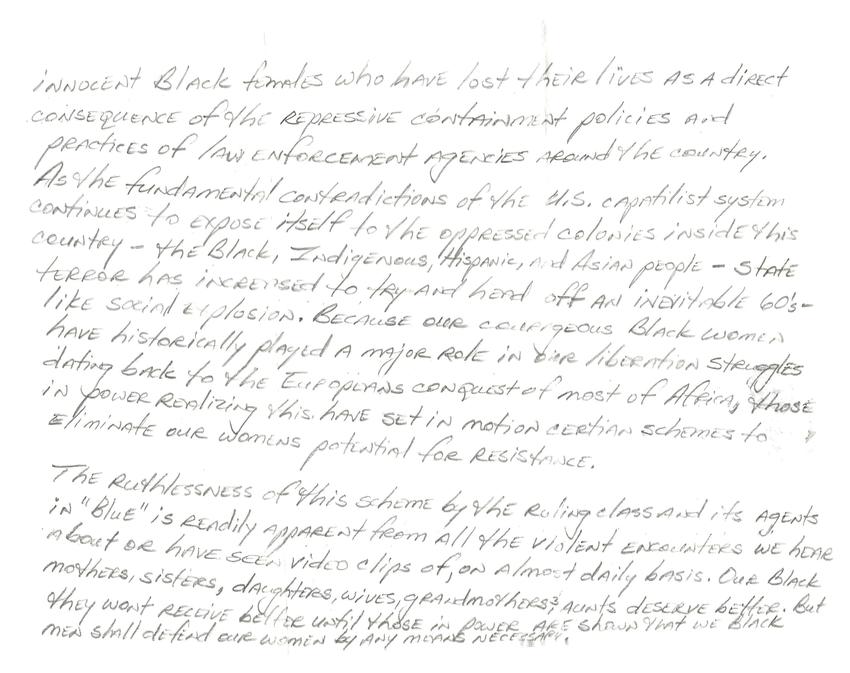 innocent Black females who have lost their lives as a direct
consequence of the repressive containment policies and
practices of law enforcement agencies around the country.
As the fundamental contradictions of the U.S. capatilist system
continues to expose itself to the oppressed colonies inside this
country - the Black, Indigenous, Hispanic, and Asian people - state
terror has increased to try and head off an inevitable 60's-
like social explosion. Because our courageous Black women
have historically played a major role in our liberation struggles
dating back to the Europeans conquest of most of Africa, those
in power realizing this have set in motion certian schemes to
eliminate our womens potential for resistance.
The ruthlessness of this scheme by the ruling class and its agents
in "Blue" is readily apparent from all the violent encounters we hear
about or have seen video clips of, on almost daily basis. Our Black
mothers, sisters, daughters, wives, grandmothers & aunts deserve better. But
they wont receive better until those in power are shown that we Black
men shall defend our women by any means necessary.